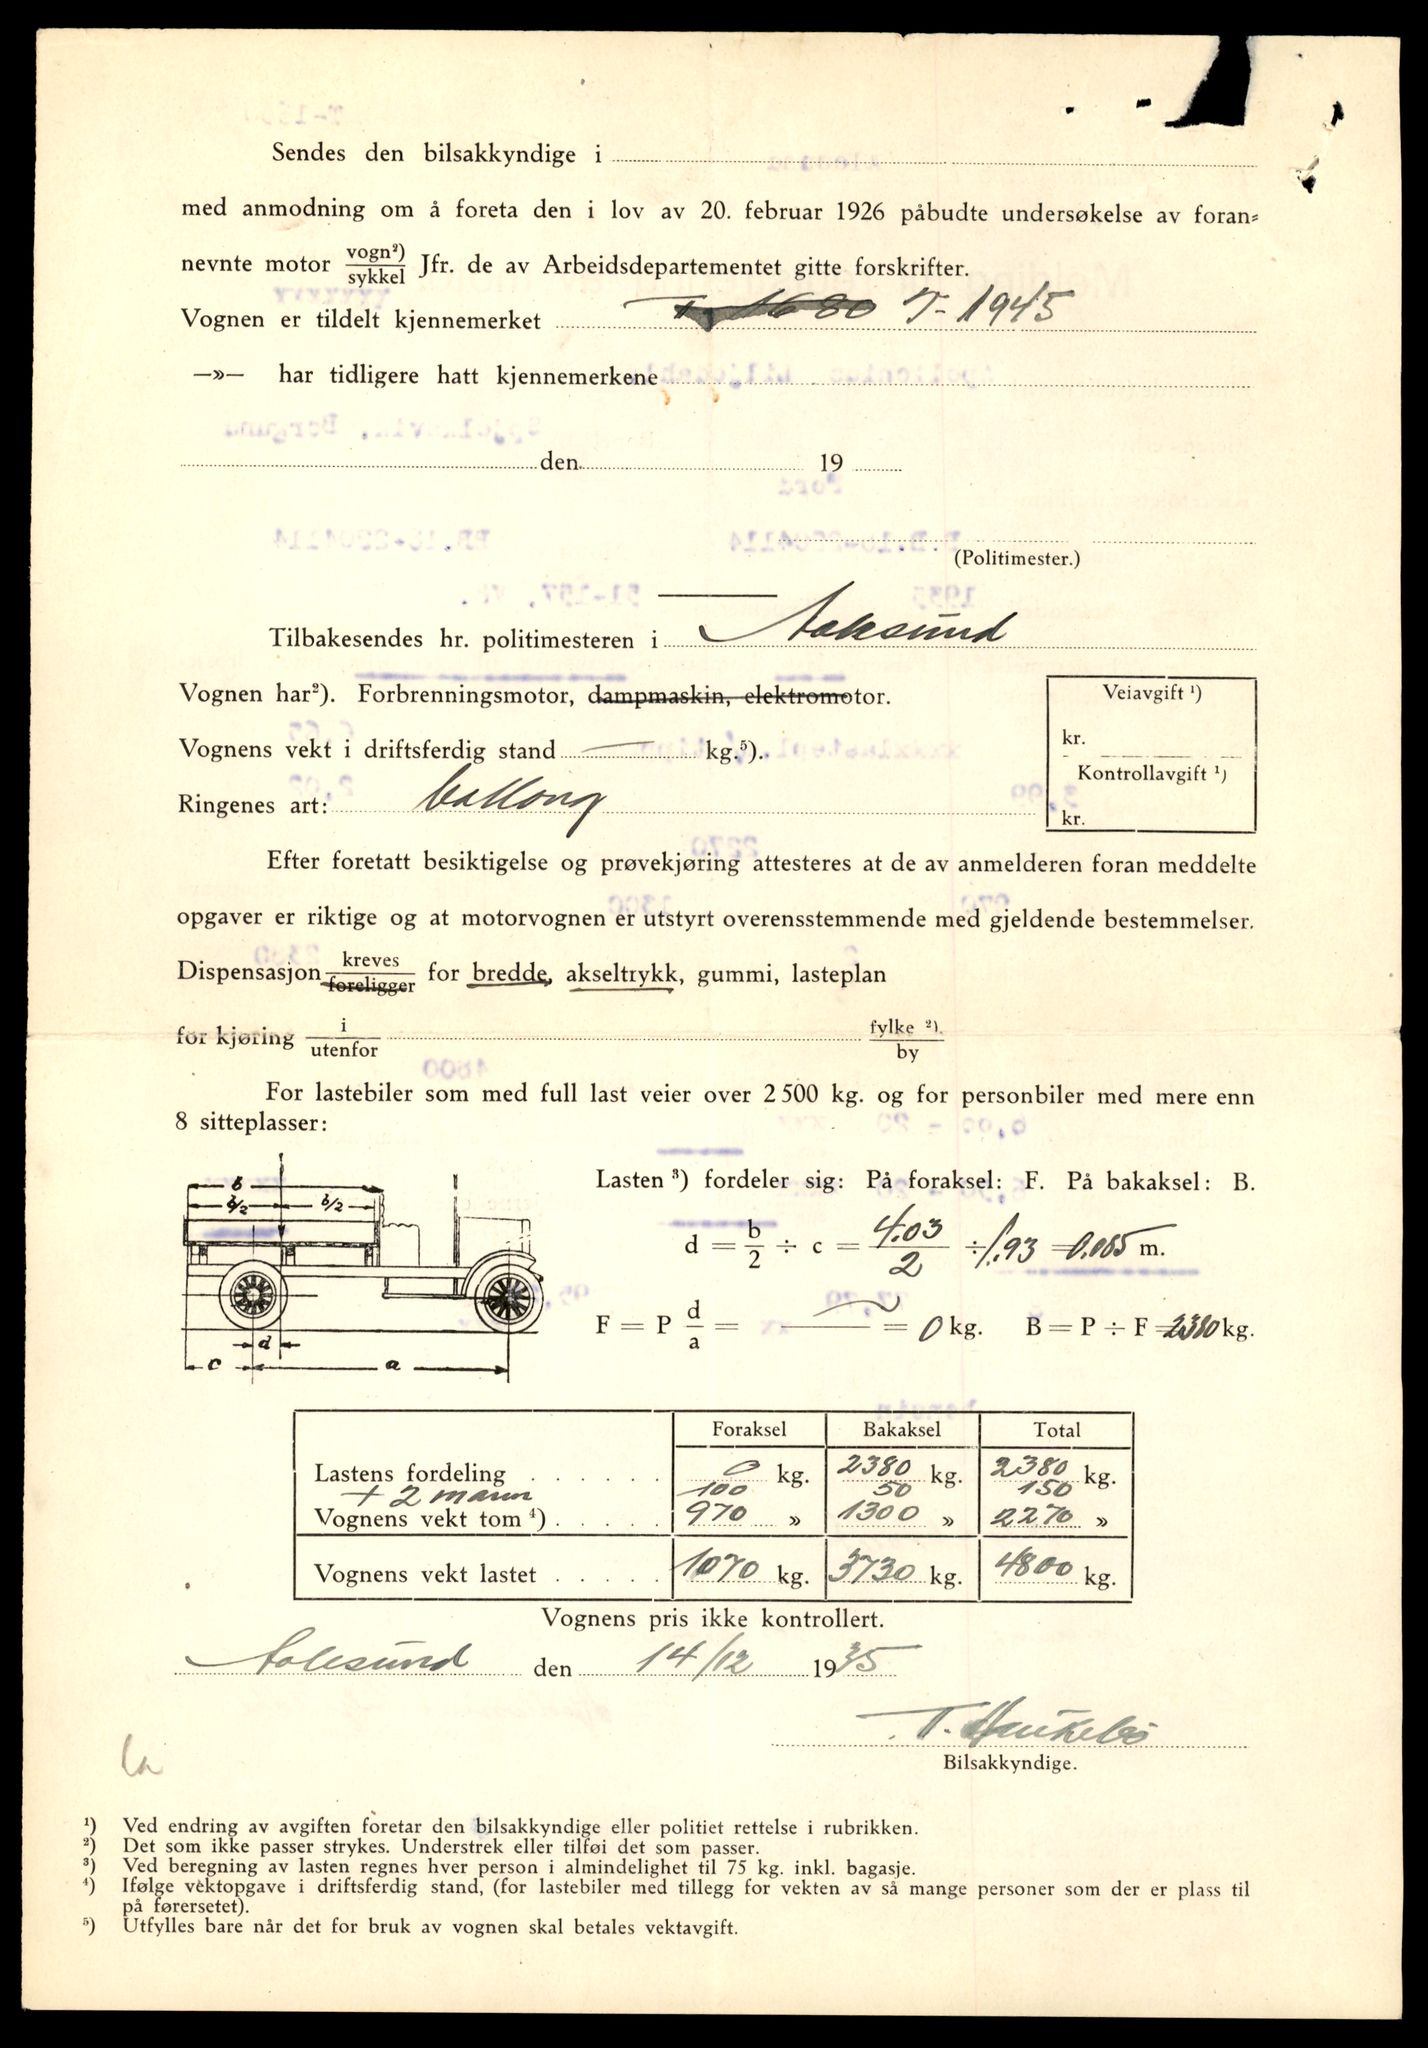 Sendes den bilsakkyndige i
med anmodning om å foreta den i lov av 20. februar 1926 påbudte undersøkelse av foran=
nevnte motor vogn²)/sykkel Jfr. de av Arbeidsdepartementet gitte forskrifter.
Vognen er tildelt kjennemerket T-1680 T-1945
—»— har tidligere hatt kjennemerkene
den 19
(Politimester.)
Tilbakesendes hr. politimesteren i Aalesund
Vognen har²). Forbrenningsmotor, dampmaskin, elektromotor.
Veiavgift ¹)
kr.
Vognens vekt i driftsferdig stand — kg.⁵).
Kontrollavgift ¹)
kr.
Ringenes art: ballong
Efter foretatt besiktigelse og prøvekjøring attesteres at de av anmelderen foran meddelte
opgaver er riktige og at motorvognen er utstyrt overensstemmende med gjeldende bestemmelser.
Dispensasjon kreves/foreligger for bredde, akseltrykk, gummi, lasteplan
for kjøring i/utenfor fylke ²)./by
For lastebiler som med full last veier over 2 500 kg. og for personbiler med mere enn
8 sitteplasser:
b
b/2 b/2
d
c a
Lasten ³) fordeler sig: På foraksel: F. På bakaksel: B.
d = b/2 ÷ c = 4.03/2 ÷ 1.93 = 0.085 m.
F = P d/a = — = 0 kg. B = P ÷ F = 2380 kg.
Foraksel Bakaksel Total
Lastens fordeling . . . . . . 0 kg. 2380 kg. 2380 kg.
+ 2 mann 100 50 150
Vognens vekt tom ⁴) . . . . . 970 » 1300 » 2270 »
Vognens vekt lastet . . . . . 1070 kg. 3730 kg. 4800 kg.
Vognens pris ikke kontrollert.
Aalesund den 14/12 1935
Bilsakkyndige.
¹) Ved endring av avgiften foretar den bilsakkyndige eller politiet rettelse i rubrikken.
²) Det som ikke passer strykes. Understrek eller tilføi det som passer.
³) Ved beregning av lasten regnes hver person i almindelighet til 75 kg. inkl. bagasje.
⁴) Ifølge vektopgave i driftsferdig stand, (for lastebiler med tillegg for vekten av så mange personer som der er plass til
på førersetet).
⁵) Utfylles bare når det for bruk av vognen skal betales vektavgift.